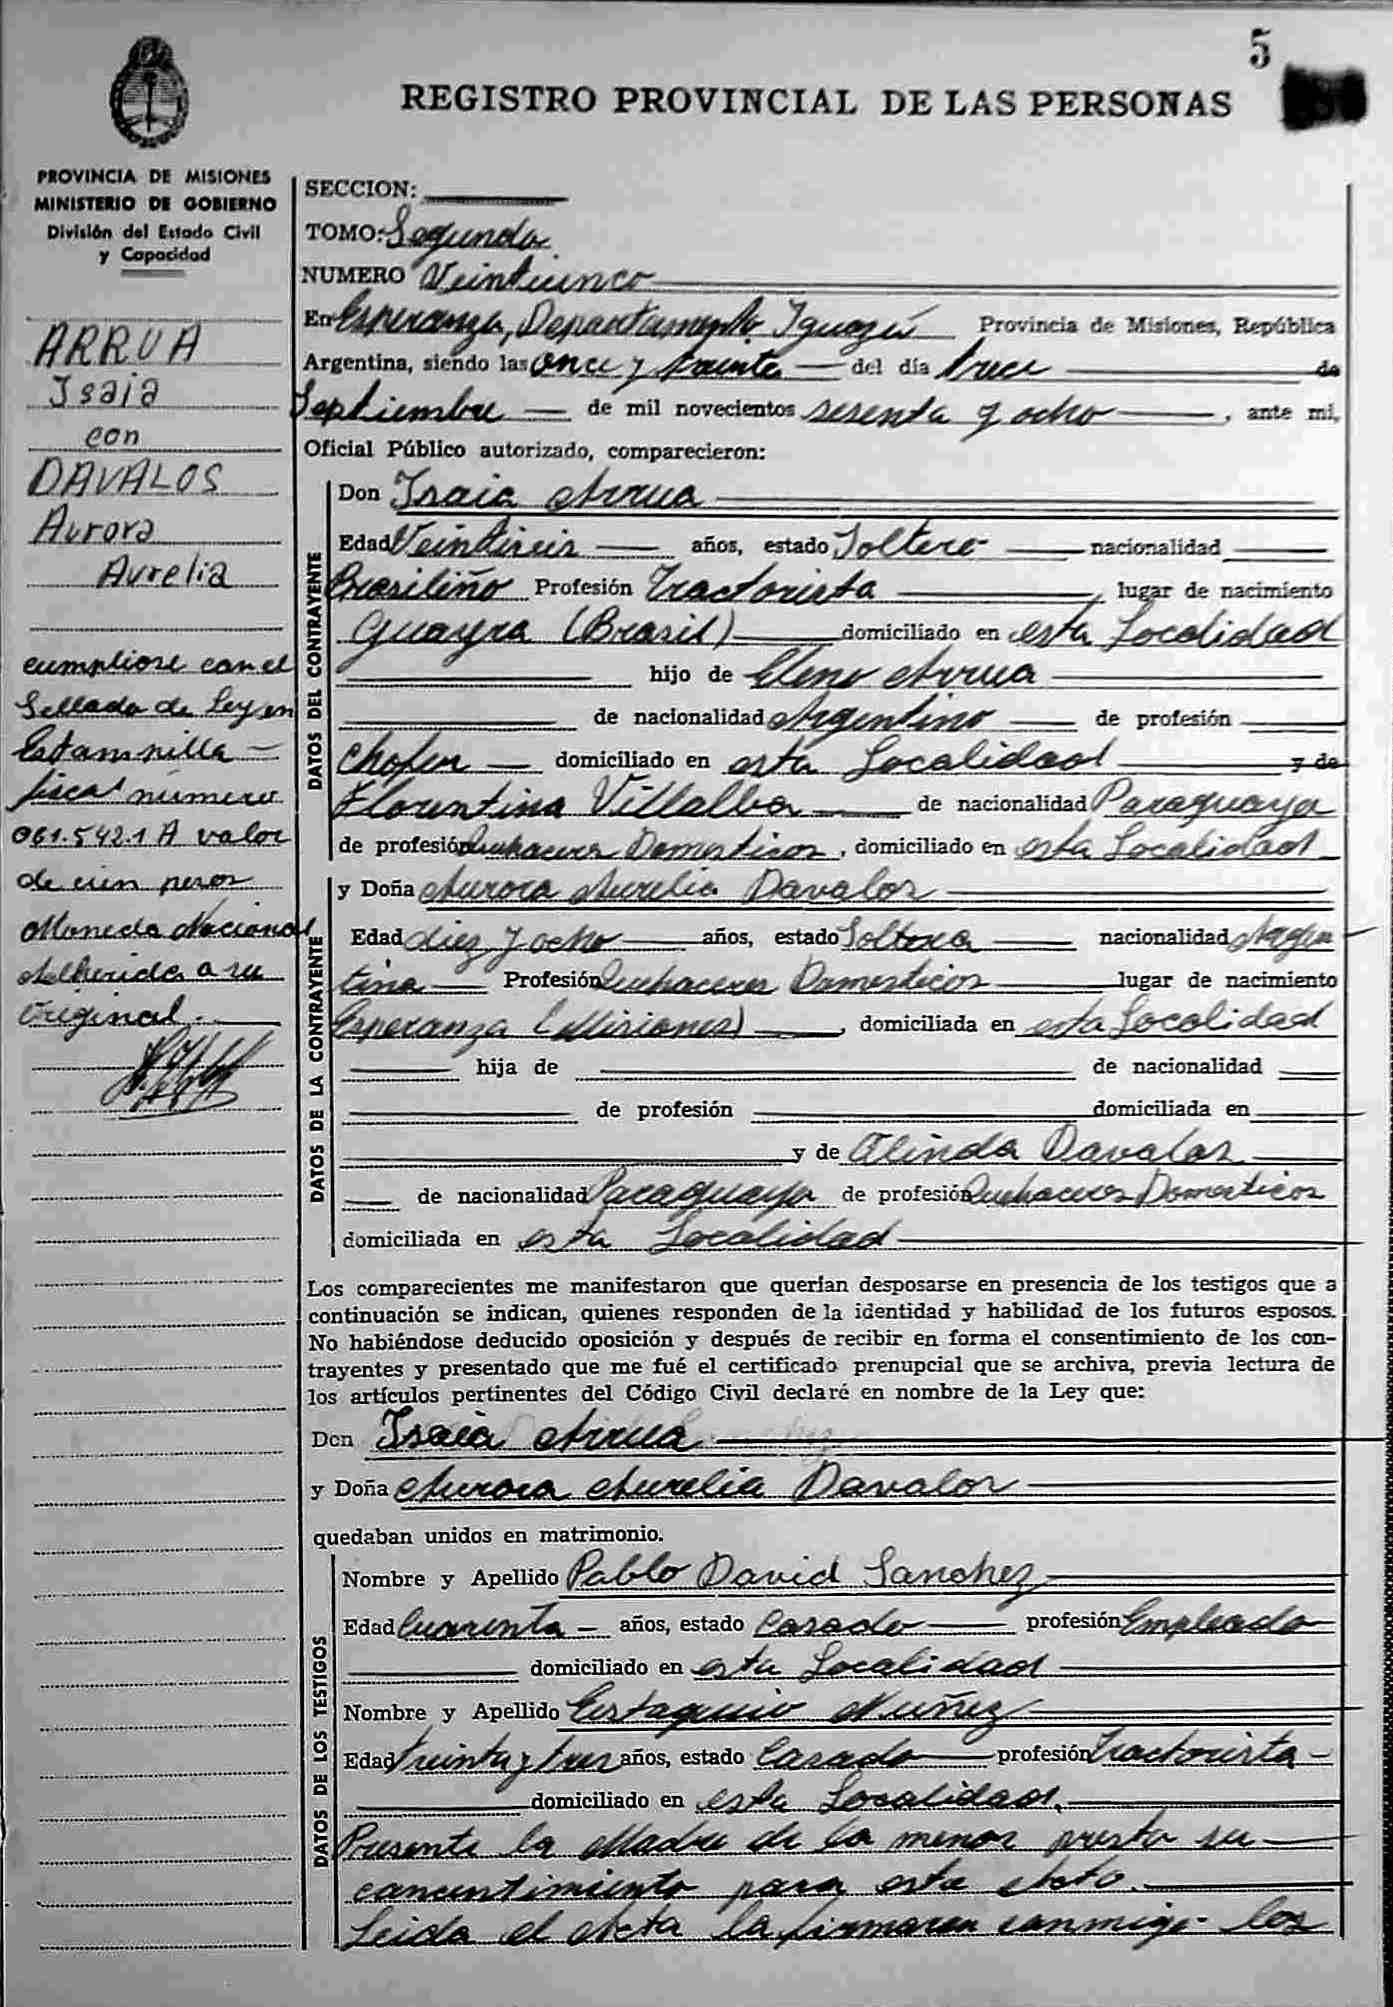 5
REGISTRO PROVINCIAL DE LAS PERSONAS
PROVINCIA DE MISIONES
MINISTERIO DE GOBIERNO
División del Estado Civil
y Capacidad
ARRUA
Isaia
con
DAVALOS
Aurora
Aurelia
cumpliose con el
Sellado de Ley en
Estampilla —
fiscal número
061.542.1 A valor
de cien pesos
Moneda Nacional
Adherida a su
Original.
SECCION:
TOMO: Segundo
NUMERO Veinticinco
En Esperanza, Departamento Iguazú Provincia de Misiones, República
Argentina, siendo las once y treinta — del día trece de
Septiembre — de mil novecientos sesenta y ocho —, ante mi,
Oficial Público autorizado, comparecieron:
DATOS DEL CONTRAYENTE
Don Isaia Arrua
Edad Veintiseis — años, estado Soltero — nacionalidad
Brasiliño Profesión Tractorista —, lugar de nacimiento
Guayra (Brasil) domiciliado en esta Localidad
hijo de Eleno Arrua
de nacionalidad Argentino — de profesión
Chofer — domiciliado en esta Localidad y de
Florentina Villalba — de nacionalidad Paraguaya
de profesión Quehaceres Domesticos, domiciliado en esta Localidad
DATOS DE LA CONTRAYENTE
y Doña Aurora Aurelia Davalos
Edad diez y ocho — años, estado Soltera — nacionalidad Argen
tina — Profesión Quehaceres Domesticos lugar de nacimiento
Esperanza (Misiones) —, domiciliada en esta Localidad
hija de de nacionalidad
de profesión domiciliada en
y de Olinda Davalos
de nacionalidad Paraguaya de profesión Quehaceres Domesticos
domiciliada en esta Localidad
Los comparecientes me manifestaron que querían desposarse en presencia de los testigos que a
continuación se indican, quienes responden de la identidad y habilidad de los futuros esposos.
No habiéndose deducido oposición y después de recibir en forma el consentimiento de los con-
trayentes y presentado que me fué el certificado prenupcial que se archiva, previa lectura de
los artículos pertinentes del Código Civil declaré en nombre de la Ley que:
Don Isaia Arrua
y Doña Aurora Aurelia Davalos
quedaban unidos en matrimonio.
DATOS DE LOS TESTIGOS
Nombre y Apellido Pablo David Sanchez
Edad Cuarenta — años, estado Casado — profesión Empleado
domiciliado en esta Localidad
Nombre y Apellido Eustaquio Nuñez
Edad treinta y tres años, estado Casado — profesión Tractorista —
domiciliado en esta Localidad.
Presente la Madre de la menor presta su —
concentimiento para este Acto.
Leida el Acta la firmaron conmigo los